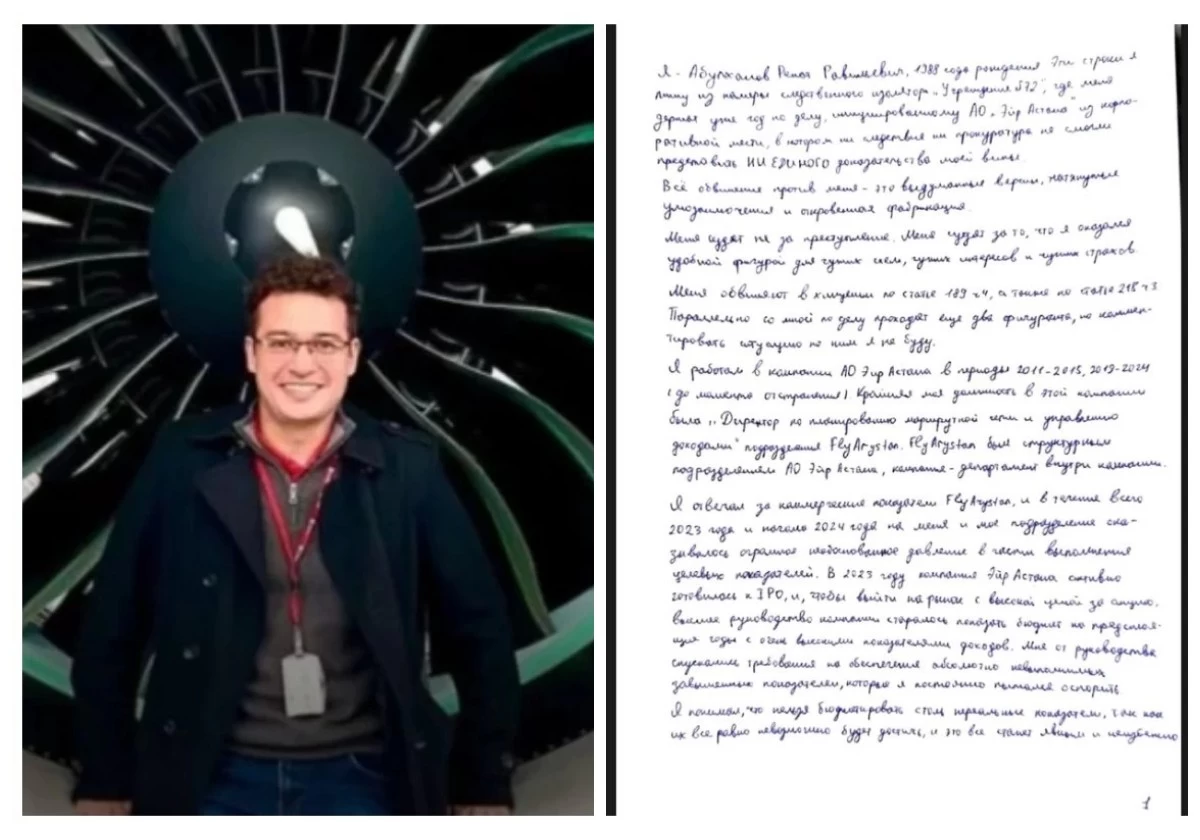 Я - Абулханов Ренат Равильевич, 1988 года рождения. Эти строки я
пишу из камеры следственного изолятора „Учреждения 572", где меня
держат уже год по делу, инициированному АО „Эйр Астана" из корпо-
ративной мести, в котором ни следствие ни прокуратура не смогли
представить НИ ЕДИНОГО доказательства моей вины.
Всё обвинение против меня - это выдуманные версии, натянутые
умозаключения и откровенная фабрикация.
Меня судят не за преступление. Меня судят за то, что я оказался
удобной фигурой для чужих схем, чужих интересов и чужих страхов.
Меня обвиняют в хищении по статье 189 ч4, а также по статье 218 ч3.
Параллельно со мной по делу проходят еще два фигуранта, но коммен-
тировать ситуацию по ним я не буду.
Я работал в компании АО Эйр Астана в периоды 2011-2015, 2019-2024
(до момента отстранения). Крайняя моя должность в этой компании
была „Директор по планированию маршрутной сети и управлению
доходами" подразделения FlyArystan. FlyArystan был структурным
подразделением АО Эйр Астана, компания-департамент внутри компании.
Я отвечал за коммерческие показатели FlyArystan, и в течение всего
2023 года и начало 2024 года на меня и мое подразделение ока-
зывалось огромное необоснованное давление в части выполнения
целевых показателей. В 2023 году компания Эйр Астана активно
готовилась к IPO, и, чтобы выйти на рынок с высокой ценой за акцию,
высшее руководство компании старалось показать бюджет на предстоя-
щие годы с очень высокими показателями доходов. Мне от руководства
спускались требования на обеспечение абсолютно невыполнимых
завышенных показателей, которые я постоянно пытался оспорить.
Я понимал, что нельзя бюджетировать столь нереальные показатели, так как
их все равно невозможно будет достичь, и это все станет явным и неизбежно
1